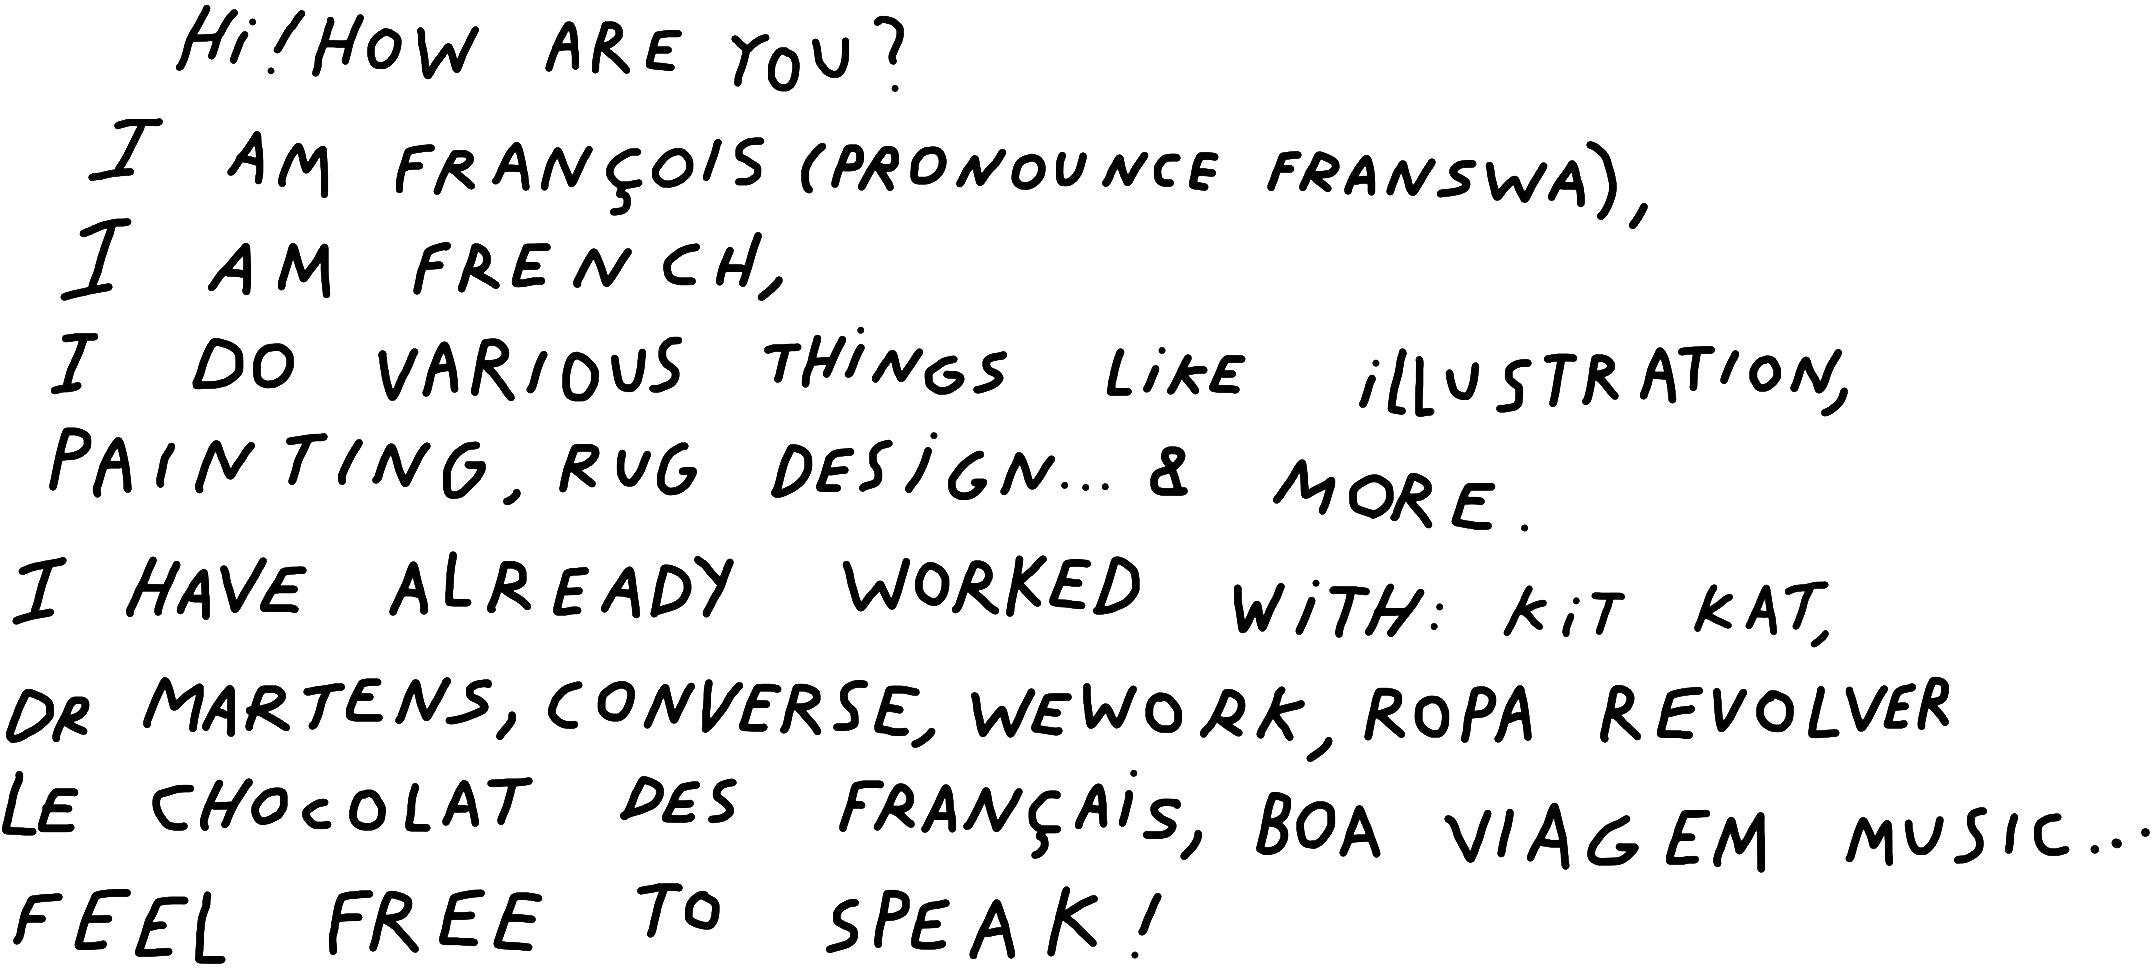 Hi! HOW ARE YOU?
I AM FRANÇOIS (PRONOUNCE FRANSWA),
I AM FRENCH,
I DO VARIOUS THiNGS LiKE iLLUSTRATION,
PAINTING, RUG DESiGN... & MORE.
I HAVE ALREADY WORKED WiTH: KiT KAT,
DR MARTENS, CONVERSE, WEWORK, ROPA REVOLVER
LE CHOCOLAT DES FRANÇAiS, BOA VIAGEM MUSIC...
FEEL FREE TO SPEAK!